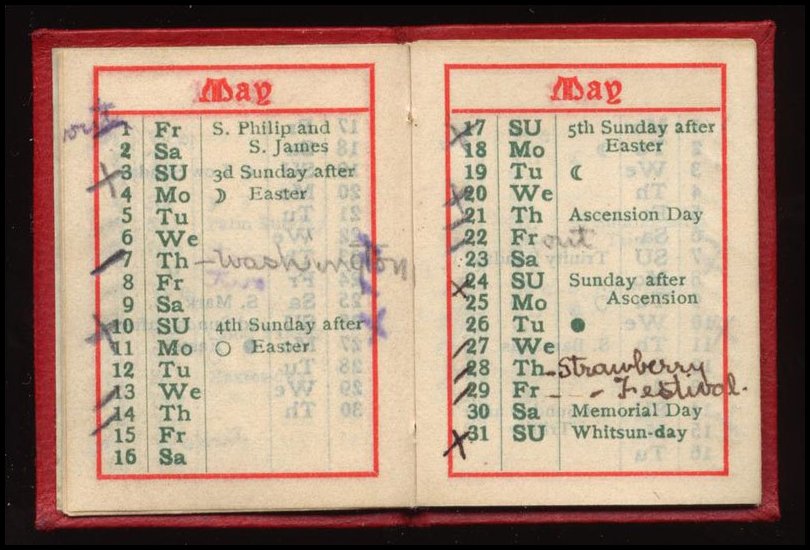 May
out 1 Fr S. Philip and
2 Sa S. James
3 SU 3d Sunday after
4 Mo ☽ Easter
5 Tu
6 We
7 Th - Washington
8 Fr
9 Sa
10 SU 4th Sunday after
11 Mo ○ Easter
12 Tu
13 We
14 Th
15 Fr
16 Sa
May
17 SU 5th Sunday after
18 Mo Easter
19 Tu ☾
20 We
21 Th Ascension Day
22 Fr out
23 Sa
24 SU Sunday after
25 Mo Ascension
26 Tu ●
27 We
28 Th - Strawberry
29 Fr - - Festival.
30 Sa Memorial Day
31 SU Whitsun-day